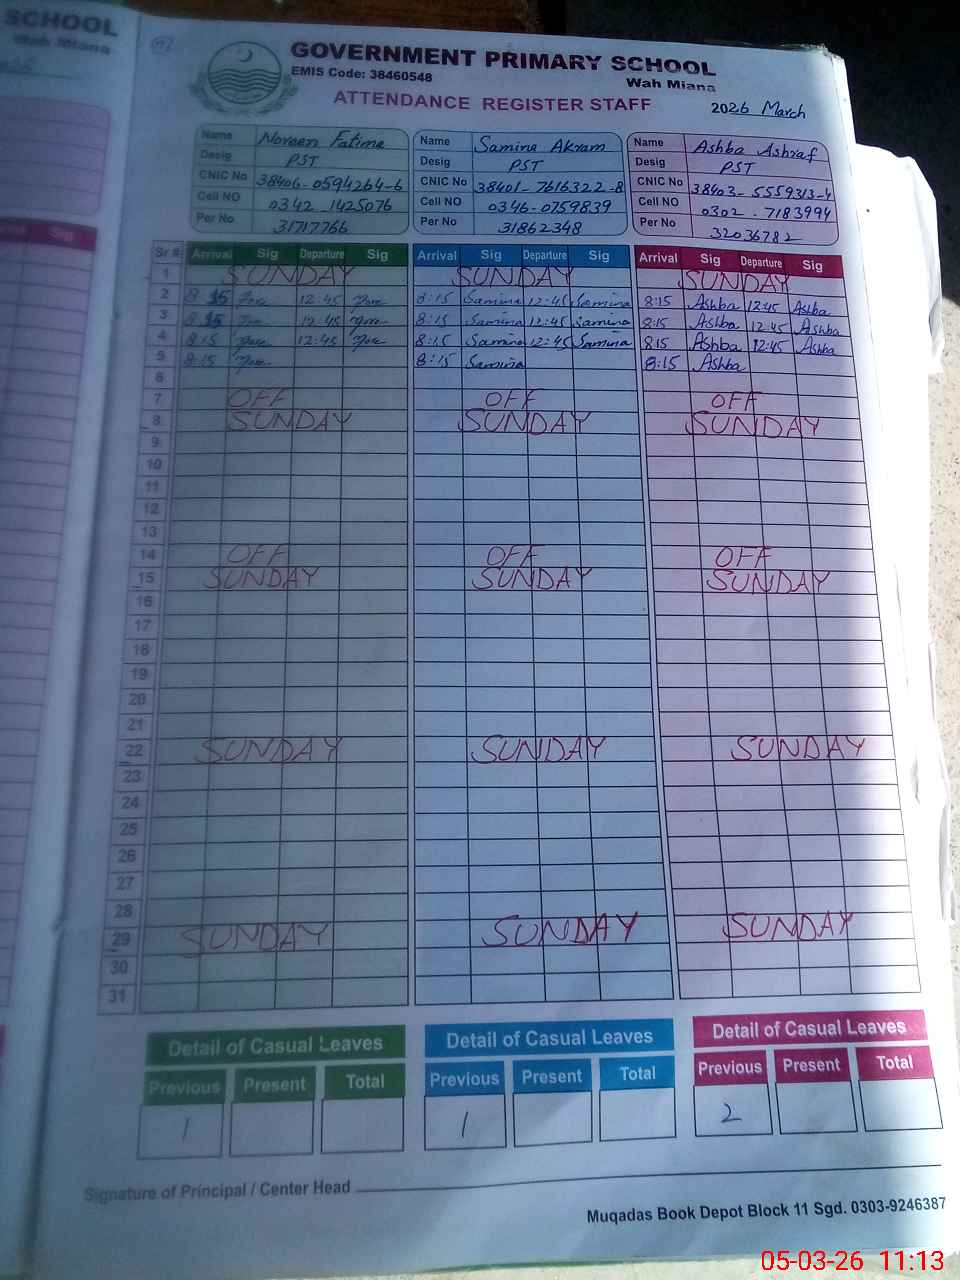 SCHOOL
Wah Miana
GOVERNMENT PRIMARY SCHOOL
EMIS Code: 38460548
Wah Miana
ATTENDANCE REGISTER STAFF
2026 March
Name Noreen Fatima
Desig PST
CNIC No 38406-0594264-6
Cell NO 0342-1425076
Per No 31717766
Name Samina Akram
Desig PST
CNIC No 38401-7616322-8
Cell NO 0346-0759839
Per No 31862348
Name Ashba Ashraf
Desig PST
CNIC No 38403-5559313-4
Cell NO 0302-7183994
Per No 32036782
Sr # Arrival Sig Departure Sig Arrival Sig Departure Sig Arrival Sig Departure Sig
1 SUNDAY SUNDAY SUNDAY
2 8:15 12:45 8:15 Samina 12:45 Samina 8:15 Ashba 12:45 Ashba
3 8:15 12:45 8:15 Samina 12:45 Samina 8:15 Ashba 12:45 Ashba
4 8:15 12:45 8:15 Samina 12:45 Samina 8:15 Ashba 12:45 Ashba
5 8:15 8:15 Samina 8:15 Ashba
6
7 OFF OFF OFF
8 SUNDAY SUNDAY SUNDAY
9
10
11
12
13
14 OFF OFF OFF
15 SUNDAY SUNDAY SUNDAY
16
17
18
19
20
21
22 SUNDAY SUNDAY SUNDAY
23
24
25
26
27
28
29 SUNDAY SUNDAY SUNDAY
30
31
Detail of Casual Leaves Detail of Casual Leaves Detail of Casual Leaves
Previous Present Total Previous Present Total Previous Present Total
1 1 2
Signature of Principal / Center Head
Muqadas Book Depot Block 11 Sgd. 0303-9246387
05-03-26 11:13